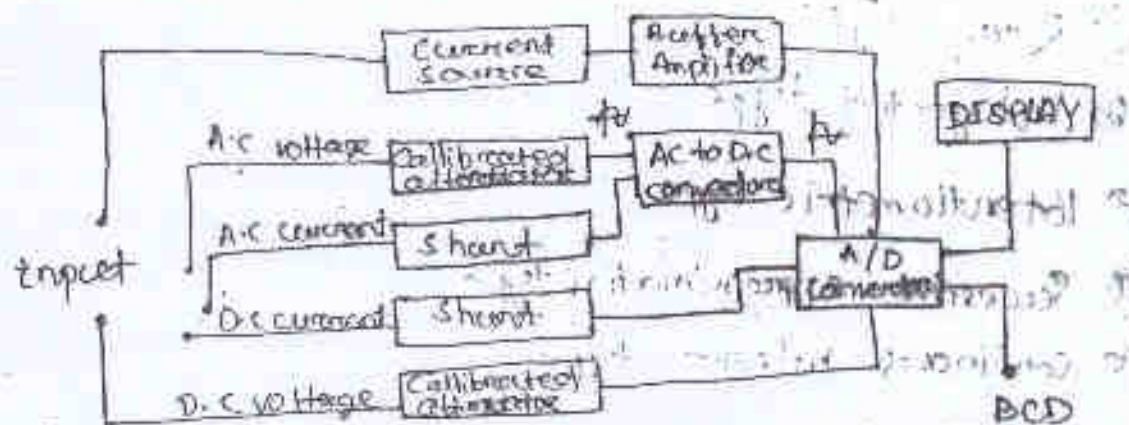 Current
source
Buffer
Amplifier
DISPLAY
A.C voltage
Callibrated
attenuator
AC to D.C
convertor
A.C current
Shunt
input
A/D
convertor
D.C current
Shunt
D.C voltage
Callibrated
attenuator
BCD